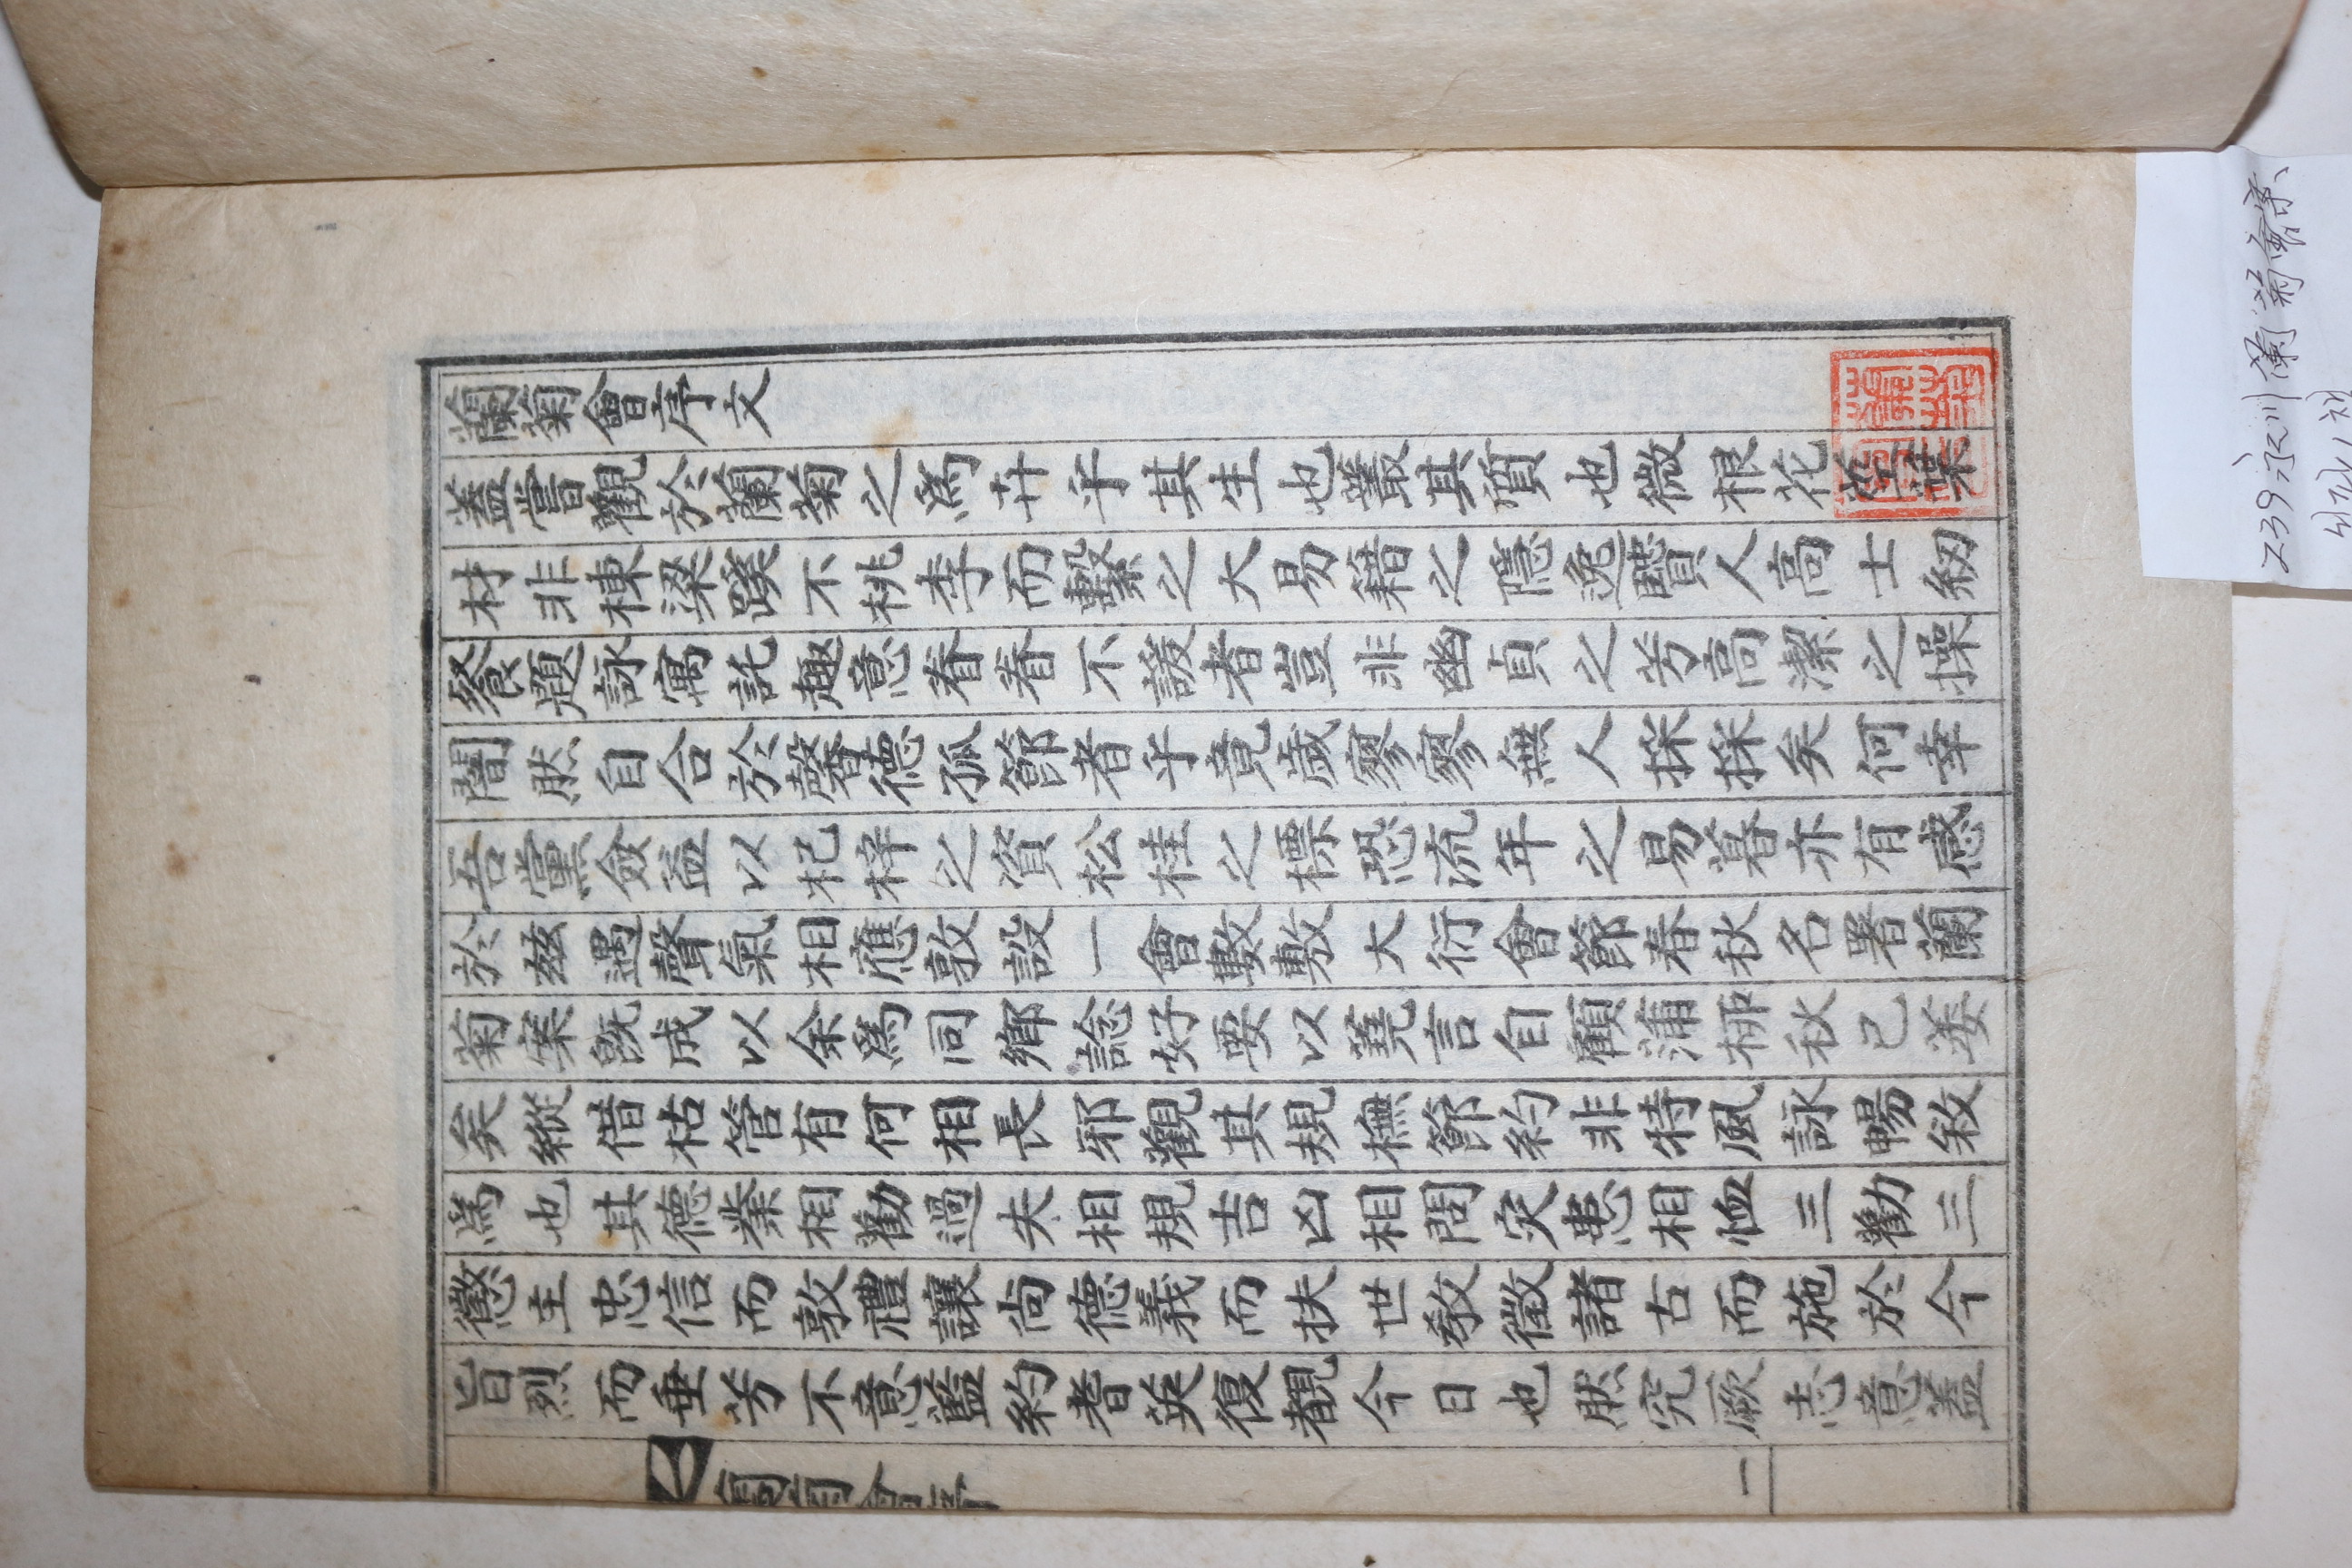 蘭菊會序文
蓋嘗觀於蘭菊之爲卉乎其生也叢其質也微根花莖葉
材非棟梁蹊不桃李而繫之大易籍之隱逸賢人高士紉
餐題詠寓託趣意眷眷不諼者豈非幽貞之芳高潔之操
闇然自合於馨德孤節者乎竟歲寥寥無人採採矣何幸
吾黨僉益以杞梓之資松桂之標恐流年之易暮亦有感
於玆遇聲氣相應敦設一會數敷大衍會節春秋名署蘭
菊案旣成以余爲同鄕諗好要以蕘言自顧蒲柳秋已萎
矣縱借枯管有何相長邪觀其規橅節約非特風詠暢敘
爲也其德業相勸過失相規吉凶相問灾患相恤三勸三
懲主忠信而敦禮讓尙德義而扶世敎徵諸古而施於今
旨烈而垂芳不意藍約耆英復覩今日也然究厥志意蓋
蘭菊會序
一
239 永川 蘭菊會案